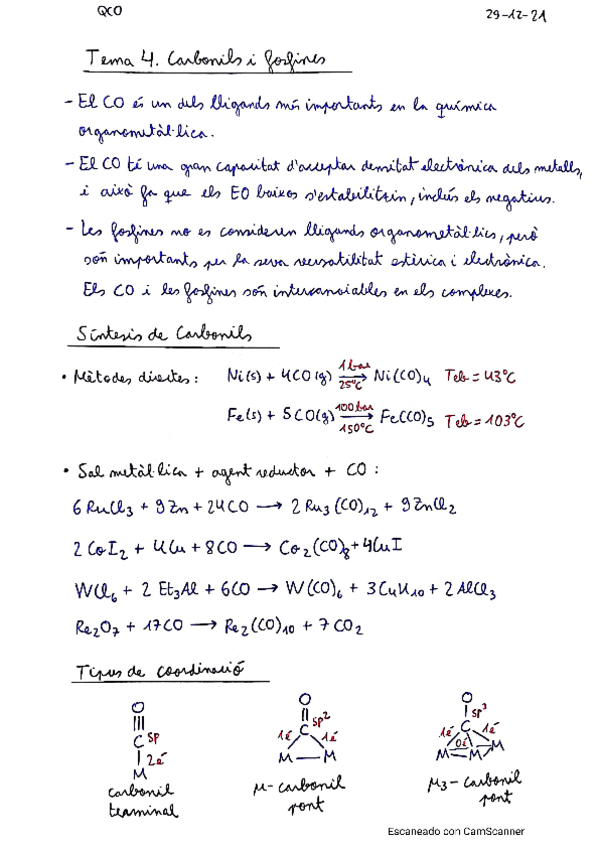 QCO
29-12-21
Tema 4. Carbonils i fosfines
- El CO és un dels lligands més importants en la química
organometàl·lica.
- El CO té una gran capacitat d'acceptar densitat electrònica dels metalls,
i això fa que els EO baixos s'estabilitzin, inclús els negatius.
- Les fosfines no es consideren lligands organometàl·lics, però
són importants per la seva versatilitat estèrica i electrònica.
Els CO i les fosfines són intercanviables en els complexes.
Síntesis de Carbonils
• Mètodes directes: Ni(s) + 4CO(g) 1 bar 25°C → Ni(CO)4 Teb = 43°C
Fe(s) + 5CO(g) 100 bar 150°C → Fe(CO)5 Teb = 103°C
• Sal metàl·lica + agent reductor + CO:
6 RuCl3 + 9 Zn + 24CO → 2 Ru3(CO)12 + 9 ZnCl2
2 CoI2 + 4Cu + 8CO → Co2(CO)8 + 4CuI
WCl6 + 2 Et3Al + 6CO → W(CO)6 + 3C4H10 + 2 AlCl3
Re2O7 + 17CO → Re2(CO)10 + 7 CO2
Tipus de coordinació
O O O
C sp C sp2 C sp3
2é 1é 1é 1é 0é 1é
M M — M M — M — M
carbonil μ- carbonil μ3 - carbonil
terminal pont pont
Escaneado con CamScanner